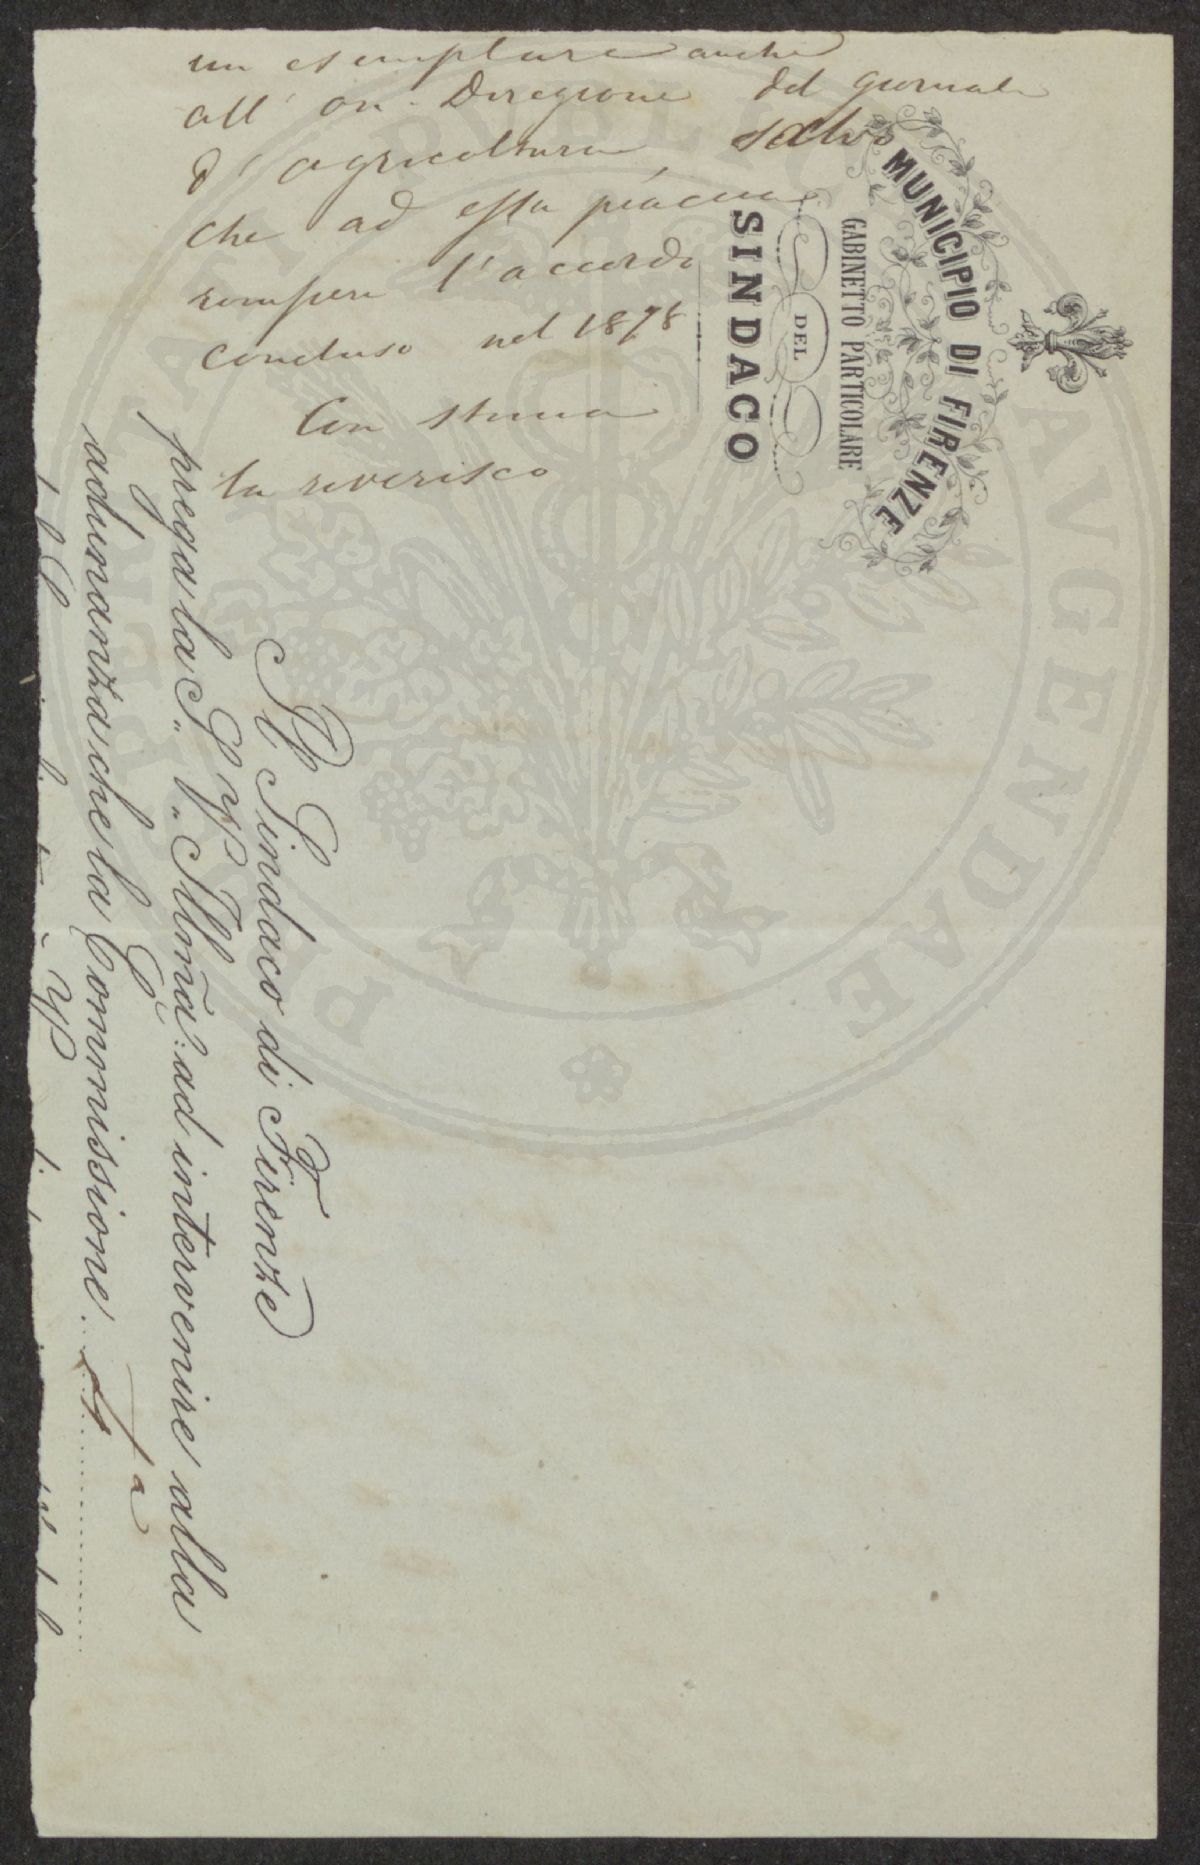 un esemplare anche
all' on. Direzione del giornale
d' agricoltura, salvo
che ad essa piaccia
rompere l'accordo
concluso nel 1878
Con stima
la riverisco
MUNICIPIO DI FIRENZE
GABINETTO PARTICOLARE
DEL
SINDACO
Il Sindaco di Firenze
prega la S. V. Illma: ad intervenire alla
adunanza che la Commissione
PVBLICAE
AVGENDAE